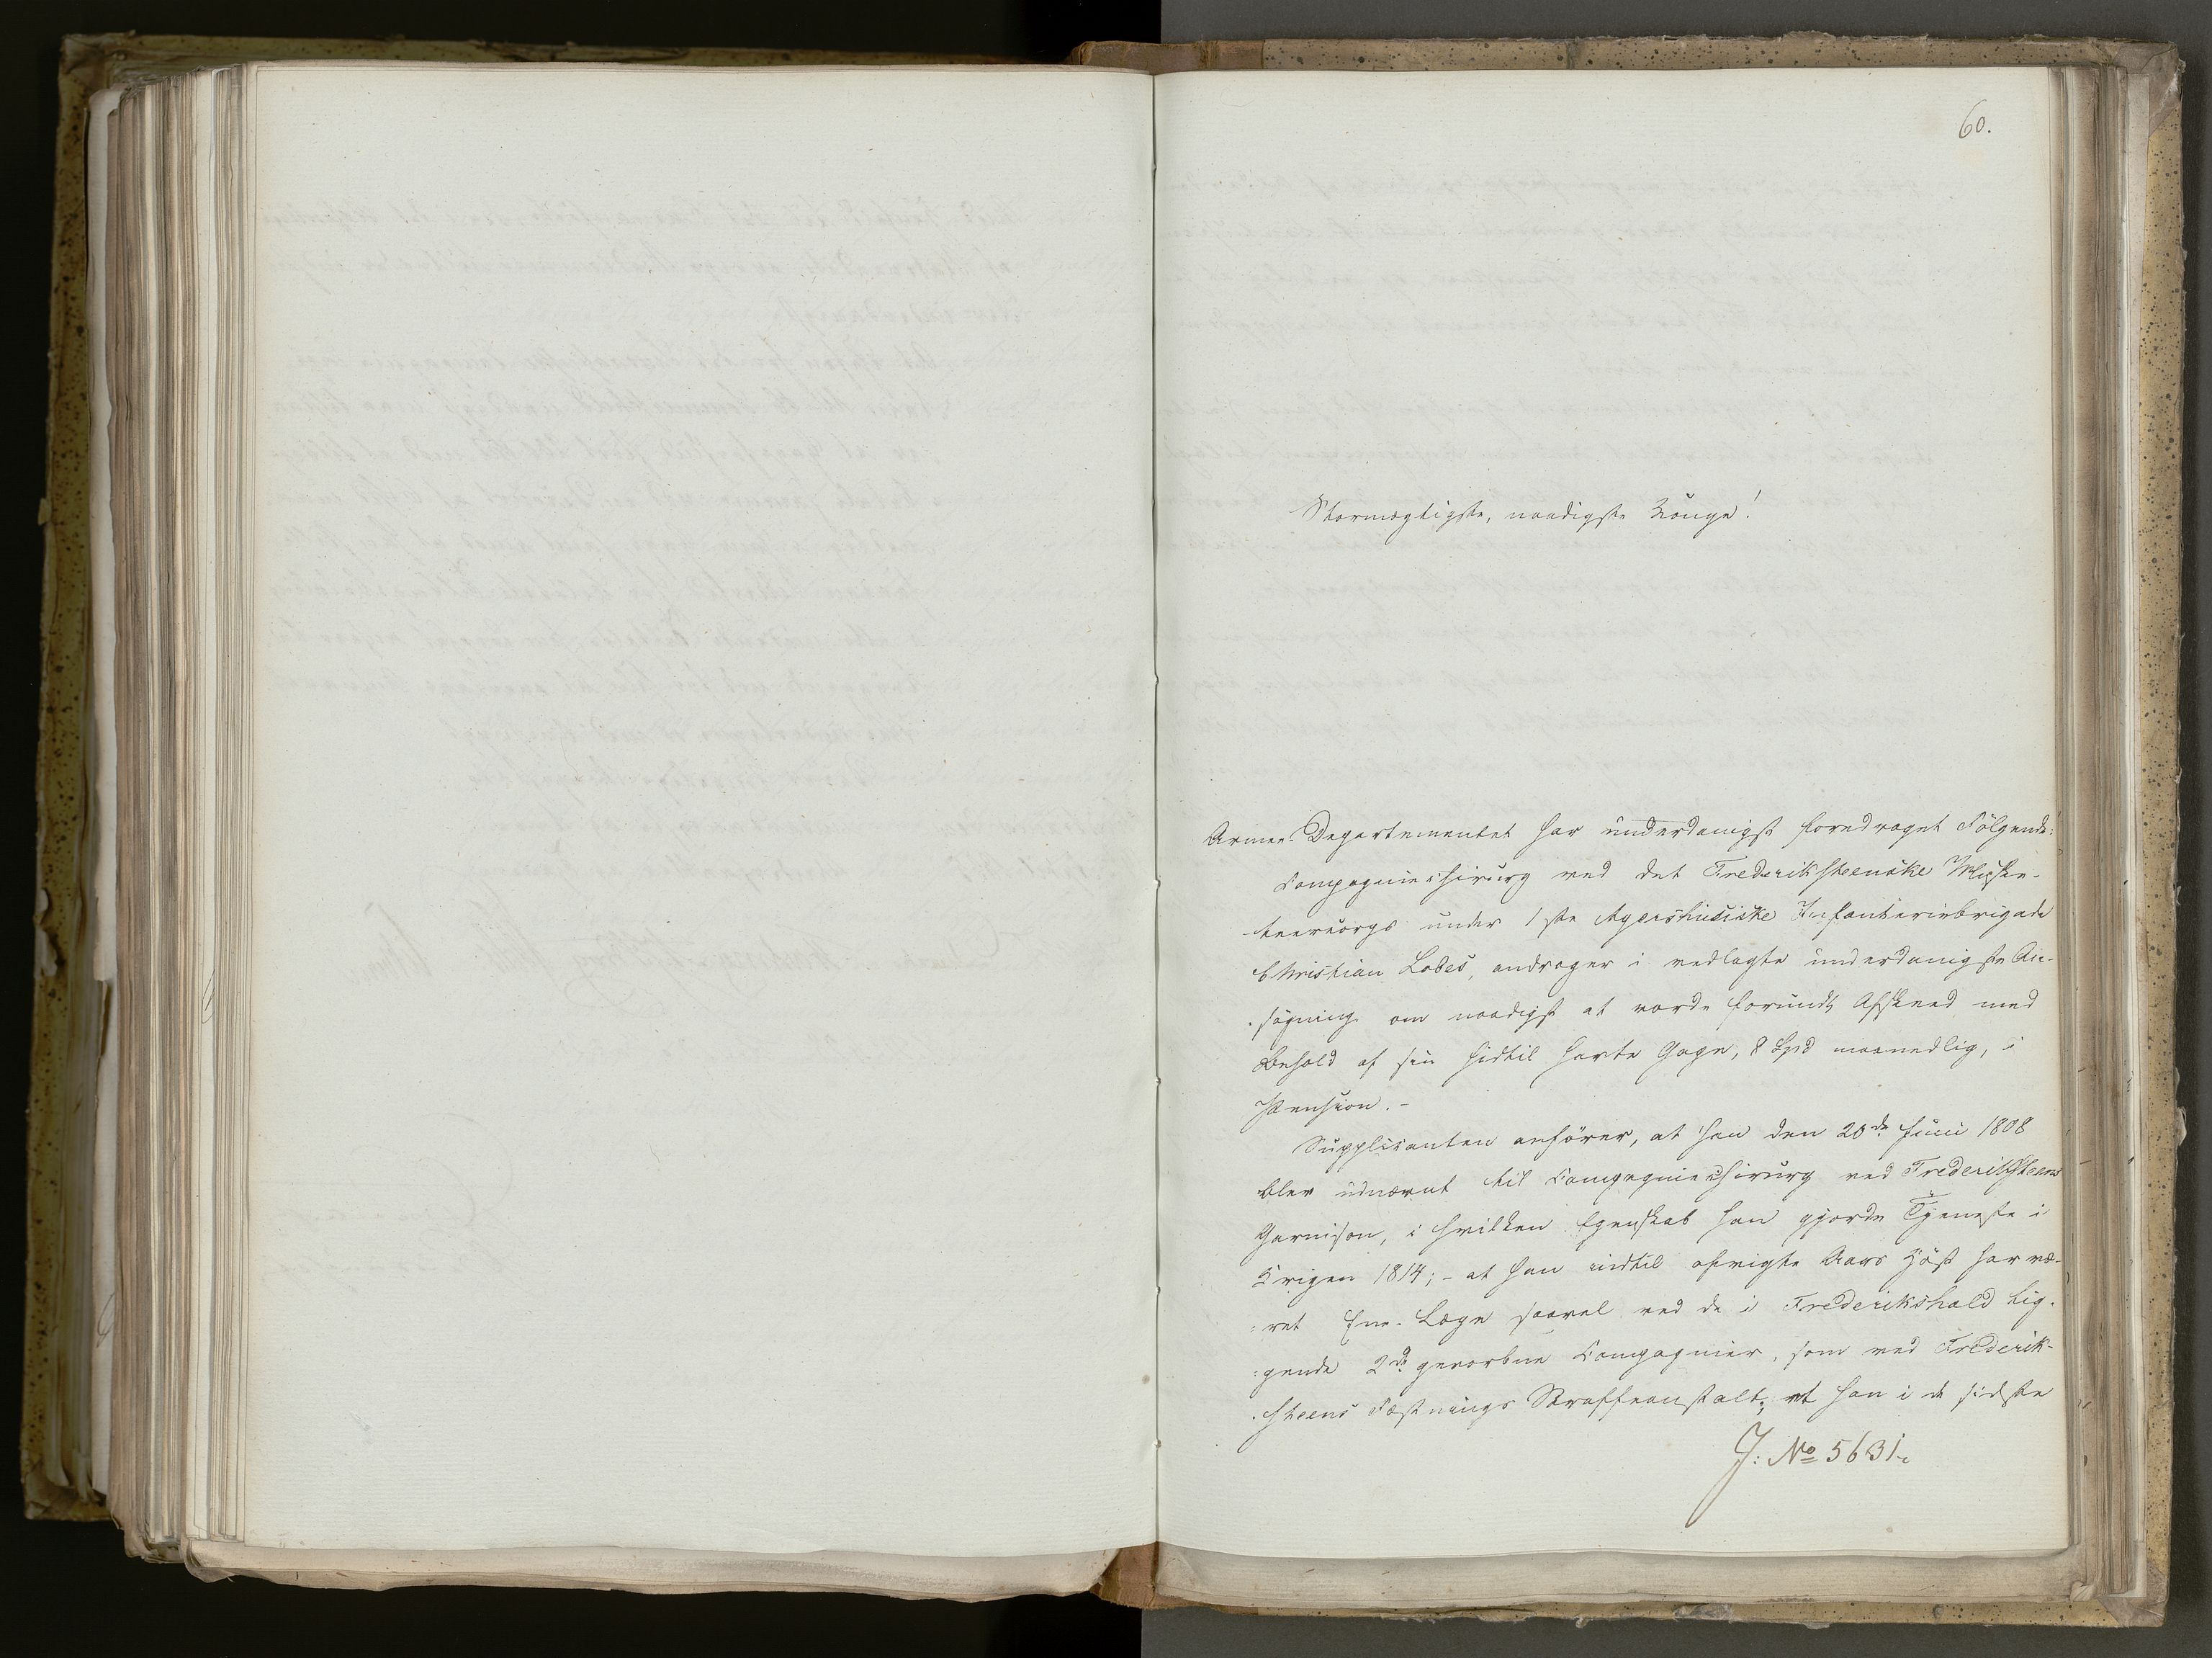 60.
Stormægtigste, naadigste Konge!
Armee-Departementet har underdanigst foredraget Følgende:
Compagniechirurg ved det Fredriksteenske Muske-
teercorps under 1ste Agershusiske Infanteriebrigade
Christian Lodes, andrager i vedlagte underdanigste An-
søgning om naadigst at vorde forundt Afskeed med
Behold af sin hidtil havte Gage, 8 Spd maanedlig, i
Pension.-
Supplicanten anfører, at han den 20de Juni 1808
blev udnævnt til Compagniechirurg ved Frederiksteens
Garnison, i hvilken Egenskab han gjorde Tjeneste i
Krigen 1814; - at han indtil afvigte Aars Høst har væ-
ret Ene-Læge saavel ved de i Frederikshald lig-
gende 2de gevorbne Compagnier, som ved Frederik-
steens Fæstnings Straffeanstalt; at han i de sidste
J: No 5631.